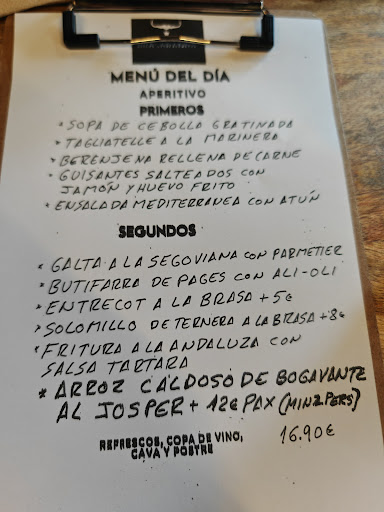 MENÚ DEL DÍA
APERITIVO
PRIMEROS
* SOPA DE CEBOLLA GRATINADA
* TAGLIATELLE A LA MARINERA
* BERENJENA RELLENA DE CARNE
* GUISANTES SALTEADOS CON
JAMÓN Y HUEVO FRITO
* ENSALADA MEDITERRANEA CON ATÚN
SEGUNDOS
* GALTA A LA SEGOVIANA CON PARMETIER
* BUTIFARRA DE PAGES CON ALI-OLI
* ENTRECOT A LA BRASA +5€
* SOLOMILLO DE TERNERA A LA BRASA +8€
* FRITURA A LA ANDALUZA CON
SALSA TARTARA
* ARROZ CALDOSO DE BOGAVANTE
AL JOSPER + 12€ PAX (MIN 2 PERS)
REFRESCOS, COPA DE VINO,
CAVA Y POSTRE
16.90€